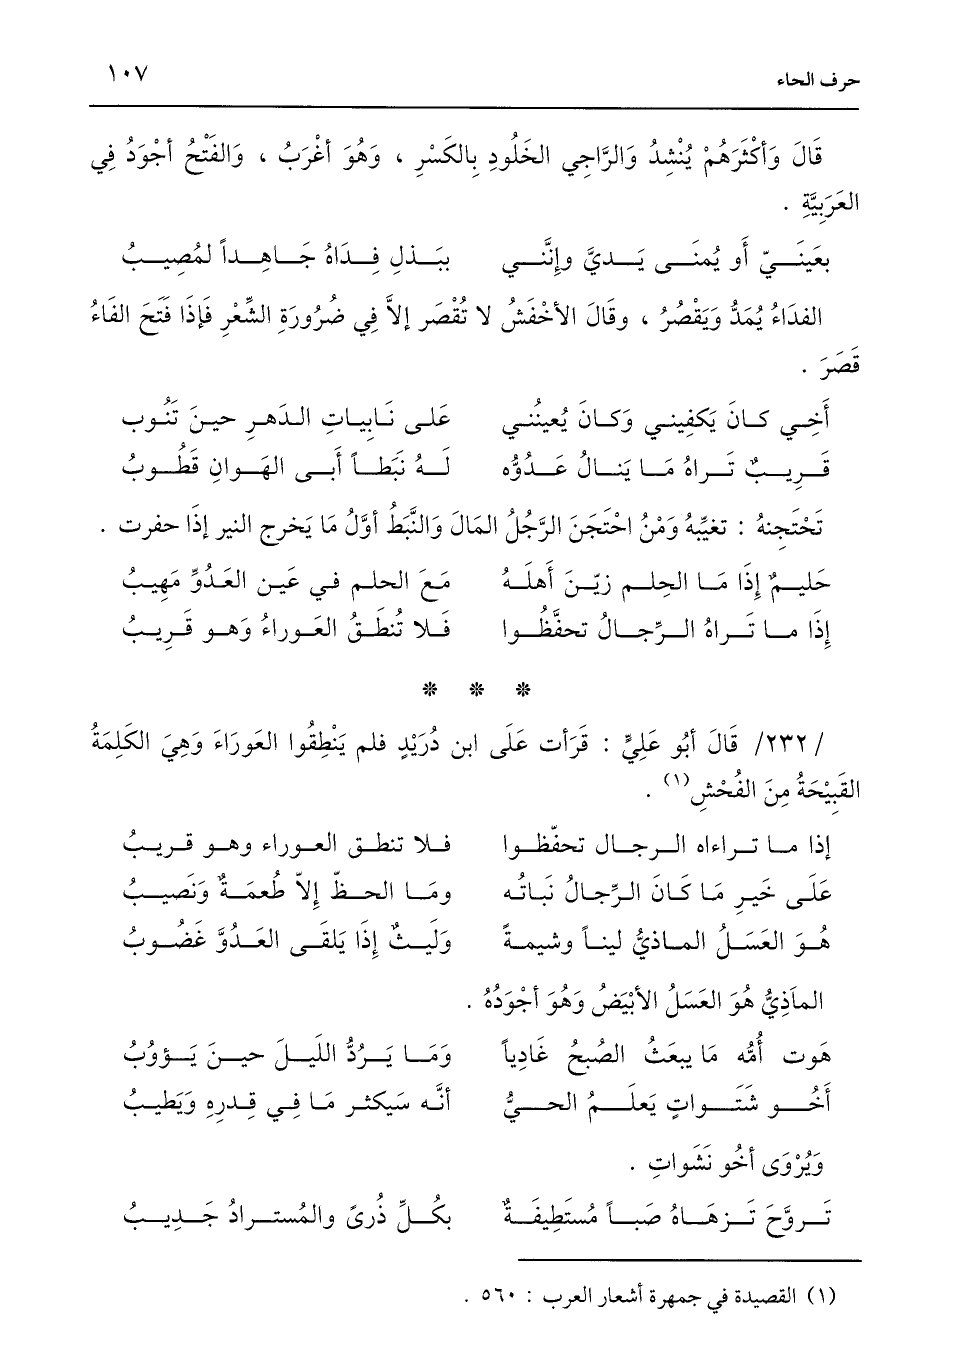 حرف الحاء ١٠٧
قَالَ وَأَكْثَرَهُمْ يُنْشِدُ وَالرَّاجِي الخَلُودِ بِالكَسْرِ ، وَهُوَ أغْرَبُ ، وَالفَتْحُ أجْوَدُ فِي
العَرَبِيَّةِ .
بعَينَيّ أَو يُمنَى يَديَّ وإنَّني ببَذلِ فِدَاهُ جَاهِداً لمُصِيبُ
الفدَاءُ يُمَدُّ وَيَقْصُرُ ، وقَالَ الأخْفَشُ لا تُقْصَر إلاَّ فِي ضَرُورَةِ الشِّعْرِ فَإذَا فَتَحَ الفَاءُ
قَصَرَ .
أَخِي كانَ يَكفِيني وَكانَ يُعينُني عَلى نَايبَاتِ الدَهرِ حينَ تَنُوب
قَرِيبٌ تَراهُ مَا يَنالُ عَدُوُّه لَهُ نَبَطاً أَبى الهَوانِ قَطُوبُ
تَحْتَجِنهُ : تغيِّبهُ وَمْنُ احْتَجَنَ الرَّجُلُ المَالَ وَالنَّبَطُ أوَّلُ مَا يَخرج النير إذَا حفرت .
حَليمٌ إذَا مَا الحِلم زيّنَ أَهلَهُ مَعَ الحلم في عَين العَدُوِّ مَهيبُ
إذَا ما تَراهُ الرِّجالُ تحفَّظُوا فَلا تُنطَقُ العَوراءُ وَهو قَرِيبُ
* * *
/٢٣٢/ قَالَ أبُو عَلِيٍّ : قَرَأت عَلَى ابن دُرَيْدٍ فلم يَنْطِقُوا العَورَاءَ وَهِيَ الكَلِمَةُ
القَبِيْحَةُ مِنَ الفُحْشِ(١) .
إذا ما تراءاه الرجال تحفّظوا فلا تنطق العوراء وهو قريبُ
عَلَى خَيرِ مَا كَانَ الرِّجالُ نَباتُه ومَا الحظّ إلاّ طُعمَةٌ ونَصيبُ
هُوَ العَسَلُ الماذيُّ ليناً وشيمةً وَلَيثٌ إذَا يَلقَى العَدُوَّ غَضُوبُ
المَاذِيُّ هُوَ العَسَلُ الأبْيَضُ وَهُوَ أجْوَدُهُ .
هَوت أُمُّه مَا يبعَثُ الصُبحُ غَادِياً وَمَا يَرُدُّ اللَيلَ حينَ يَؤوُبُ
أَخُو شَتَواتٍ يَعلَمُ الحيُّ أنَّه سَيكثر مَا فِي قِدرِهِ وَيَطيبُ
وَيُرْوَى أخُو نَشَواتِ .
تَروَّحَ تَزهَاهُ صَباً مُستَطِيفَةٌ بكُلِّ ذُرىً والمُسترادُ جَديبُ
(١) القصيدة في جمهرة أشعار العرب : ٥٦٠ .